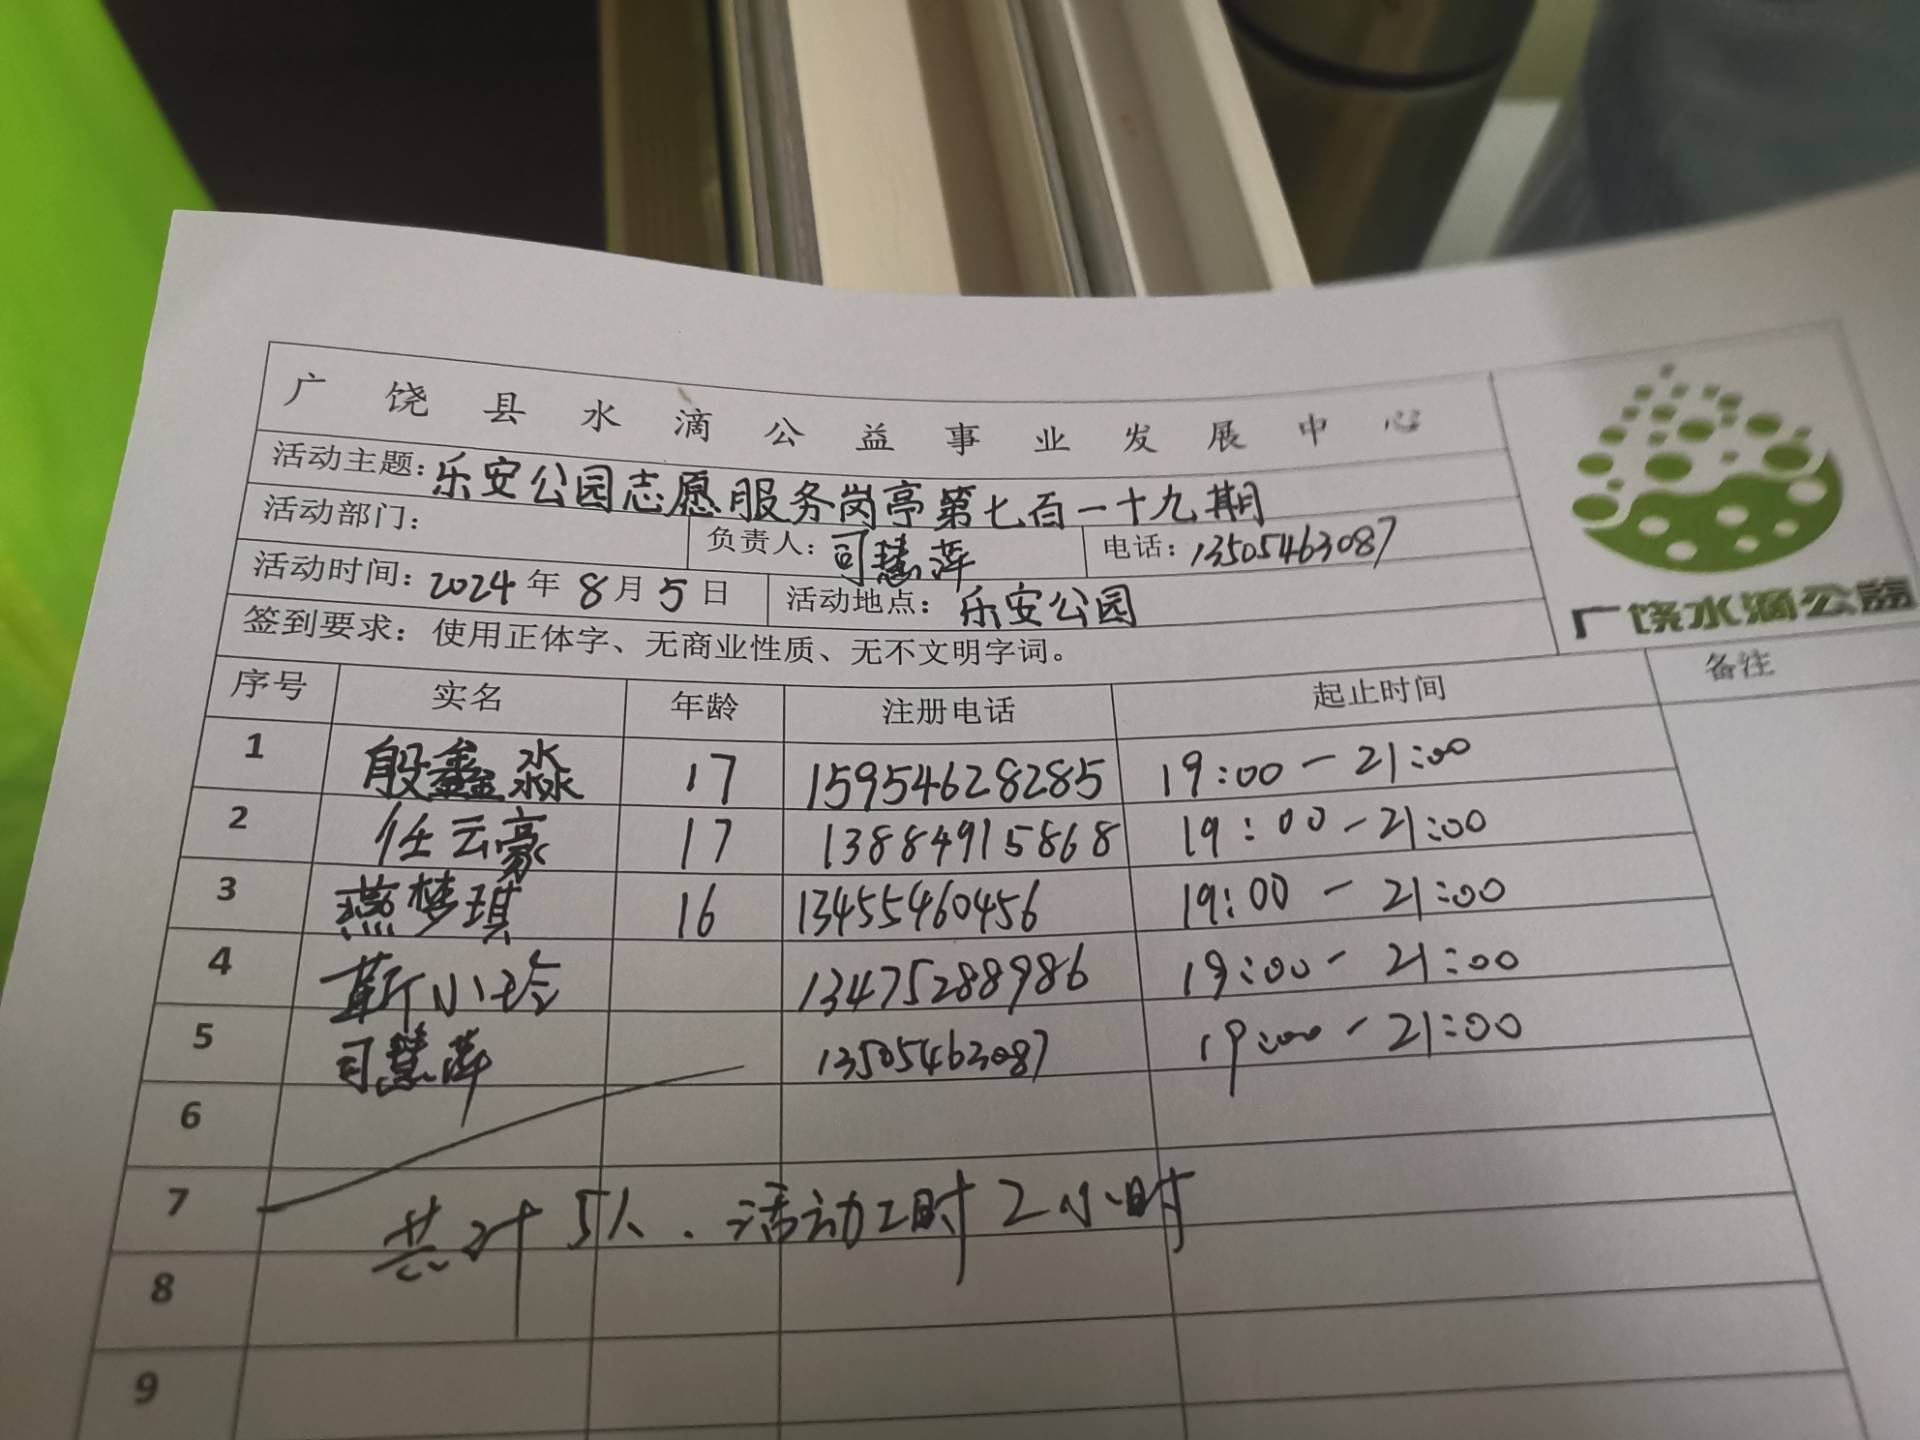 广饶县水滴公益事业发展中心
活动主题：乐安公园志愿服务岗亭第七百一十九期
活动部门：
负责人：司慧萍
电话：13505463087
活动时间：2024年8月5日
活动地点：乐安公园
签到要求：使用正体字、无商业性质、无不文明字词。
广饶水滴公益
序号 实名 年龄 注册电话 起止时间 备注
1 殷鑫淼 17 15954628285 19:00-21:00
2 任云豪 17 13884915868 19:00-21:00
3 燕梦琪 16 13455460456 19:00-21:00
4 靳小玲 13475288986 19:00-21:00
5 司慧萍 13505463087 19:00-21:00
6
7
共计5人.活动工时2小时
8
9